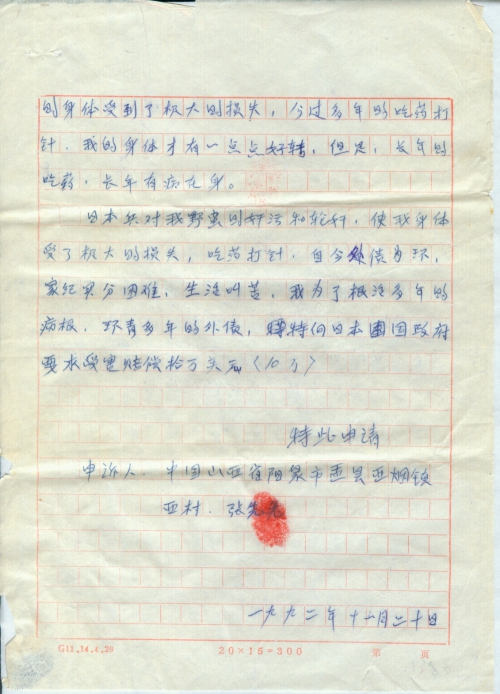 的身体受到了极大的损失，今过多年的吃药打
针．我的身体才有一点点好转，但是，长年的
吃药，长年有病在身。
日本兵对我野蛮的奸污和轮奸，使我身体
受了极大的损失，吃药打针．自今外债为环，
家纪实分困难，生活叫苦，我为了根治多年的
病根，环青多年的外债，特向日本国政府
要求受害赔偿拾万美元（10万）
特此申请
申诉人．中国山西省阳泉市盂县西烟镇
西村．张先
一九九二年十一月二十日
G11.14.4.29
20×15=300
第 页